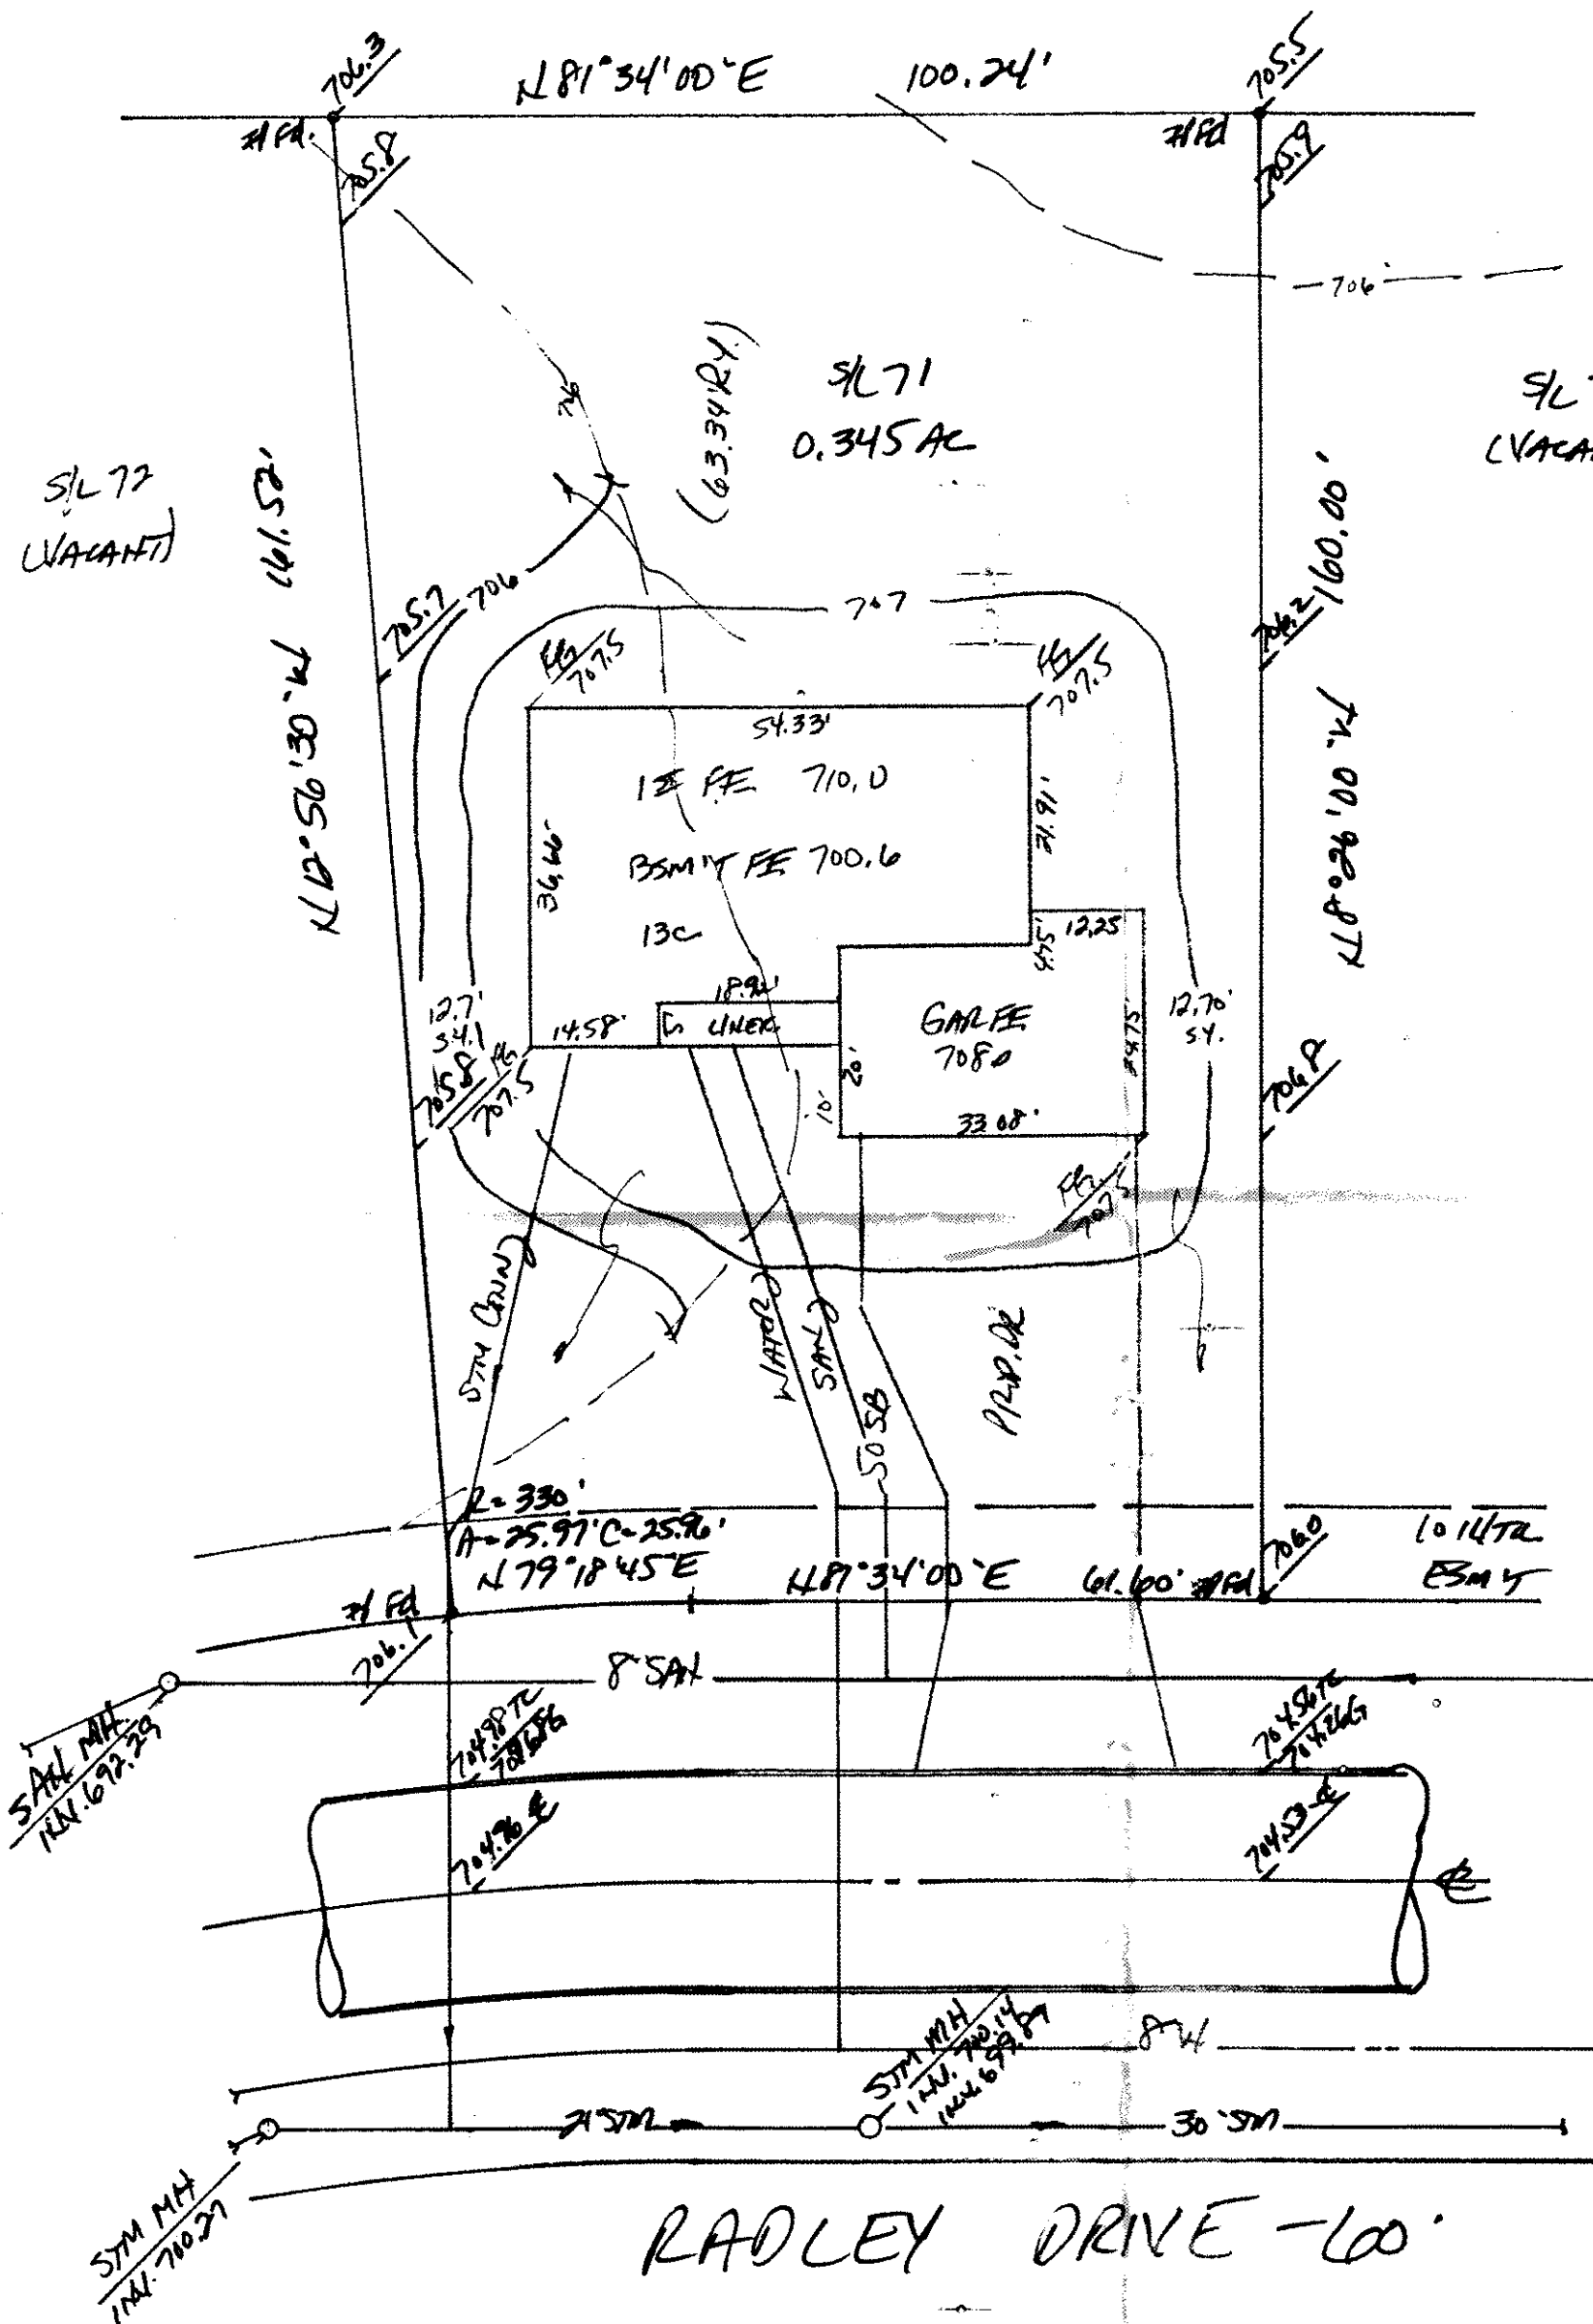 706.3
N 81°34'00"E 100.24'
705.5
Fd.
Fd
705.8
705.9
706
(63.34'R.Y.)
S/L 71
0.345 AC
S/L
S/L 72
(VACANT)
161.52'
N 12°56'30"W
160.00'
N 8°26'00"W
705.7
706
707
706.2
FG
707.5
FG
707.5
54.33'
1 FE 710.0
21.91'
36.66'
BSM'T FE 700.6
13C
4.75'
12.25
18.92'
14.58'
UNEX.
GAR FE
708.0
20'
10'
24.75'
33.08'
12.7'
S.Y.
12.70'
S.Y.
705.8
FG
707.5
706.8
FG
707.5
STM CONN
WATER
SAN
50 SB
PROP. DR
R=330'
A=25.97' C=25.96'
N 79°18'45"E
N 81°34'00"E
61.60'
Fd
706.0
10' UTIL
ESM'T
Fd
706.1
8" SAN
SAN MH.
INV. 692.29
704.98 TC
704.56 TC
704.26 G
704.96 ℄
704.53 ℄
℄
STM MH
INV. 700.14
INV. 699.89
8" W
21" STM
30" STM
STM MH
INV. 700.27
RADLEY DRIVE - 60'